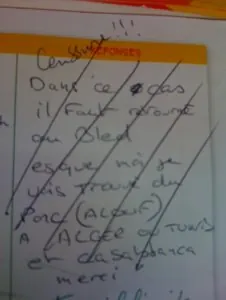 Censure!!!
RÉPONSES
Dans ce cas
il faut retourné
au Bled
esque moi je
vais trouvé du
Porc (ALOUF)
A ALGER ou TUNIS
et casablanca
merci